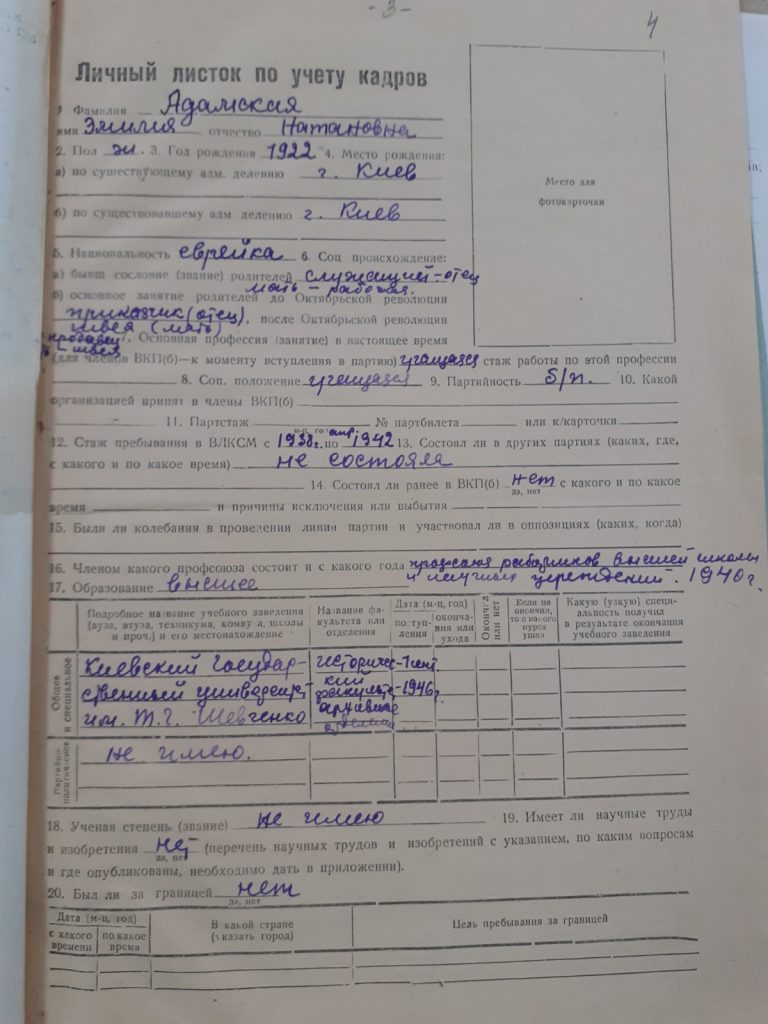 - 3 -
4
Личный листок по учету кадров
Фамилия Адамская
имя Эмилия отчество Натановна
2. Пол ж. 3. Год рождения 1922 4. Место рождения:
а) по существующему адм. делению г. Киев
б) по существовавшему адм делению г. Киев
Место для
фотокарточки
5. Национальность еврейка 6. Соц происхождение:
а) бывш. сословие (звание) родителей служащий - отец
мать - рабочая.
б) основное занятие родителей до Октябрьской революции
приказчик (отец), после Октябрьской революции
швея (мать)
продавец 7. Основная профессия (занятие) в настоящее время
- швея
(для членов ВКП(б)—к моменту вступления в партию) учащаяся стаж работы по этой профессии
8. Соц. положение учащаяся 9. Партийность б/п. 10. Какой
организацией принят в члены ВКП(б)
11. Партстаж № партбилета или к/карточки
м-ц, год
12. Стаж пребывания в ВЛКСМ с 1938 г. по 1942 13. Состоял ли в других партиях (каких, где,
с какого и по какое время) не состояла
14. Состоял ли ранее в ВКП(б) нет с какого и по какое
да, нет
время и причины исключения или выбытия
15. Были ли колебания в проведении линии партии и участвовал ли в оппозициях (каких, когда)
16. Членом какого профсоюза состоит и с какого года профсоюз работников высшей школы
и научных учреждений. 1940 г.
17. Образование высшее
Подробное название учебного заведения (вуза, втуза, техникума, комвуза, школы и проч.) и его местонахождение
Название факультета или отделения
Дата (м-ц, год)
поступления
окончания или ухода
Окончил или нет
Если не окончил, то с какого курса ушел
Какую (узкую) специальность получил в результате окончания учебного заведения
Общее и специальное
Киевский Государ- историчес- 1 сент.
ственный университет кий факультет - 1946 г.
им. Т. Г. Шевченко архивное
Партийно-политическое
не имею.
18. Ученая степень (звание) не имею 19. Имеет ли научные труды
и изобретения нет (перечень научных трудов и изобретений с указанием, по каким вопросам
да, нет
и где опубликованы, необходимо дать в приложении).
20. Был ли за границей нет
да, нет
Дата (м-ц, год)
с какого времени
по какое время
В какой стране (указать город)
Цель пребывания за границей